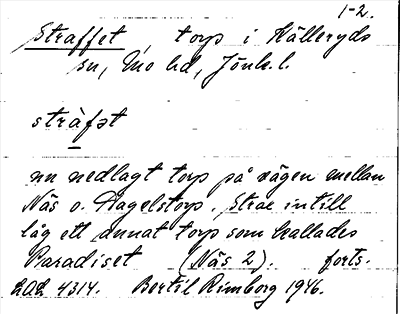 1-2.
Straffet, torp i Källeryds
sn, Mo hd, Jönk. l.
stràfət
nu nedlagt torp på vägen mellan
Näs o. Hagelstorp. Strax intill
låg ett annat torp som kallades
Paradiset (Näs 2). forts.
LAL 4314. Bertil Rimborg 1946.